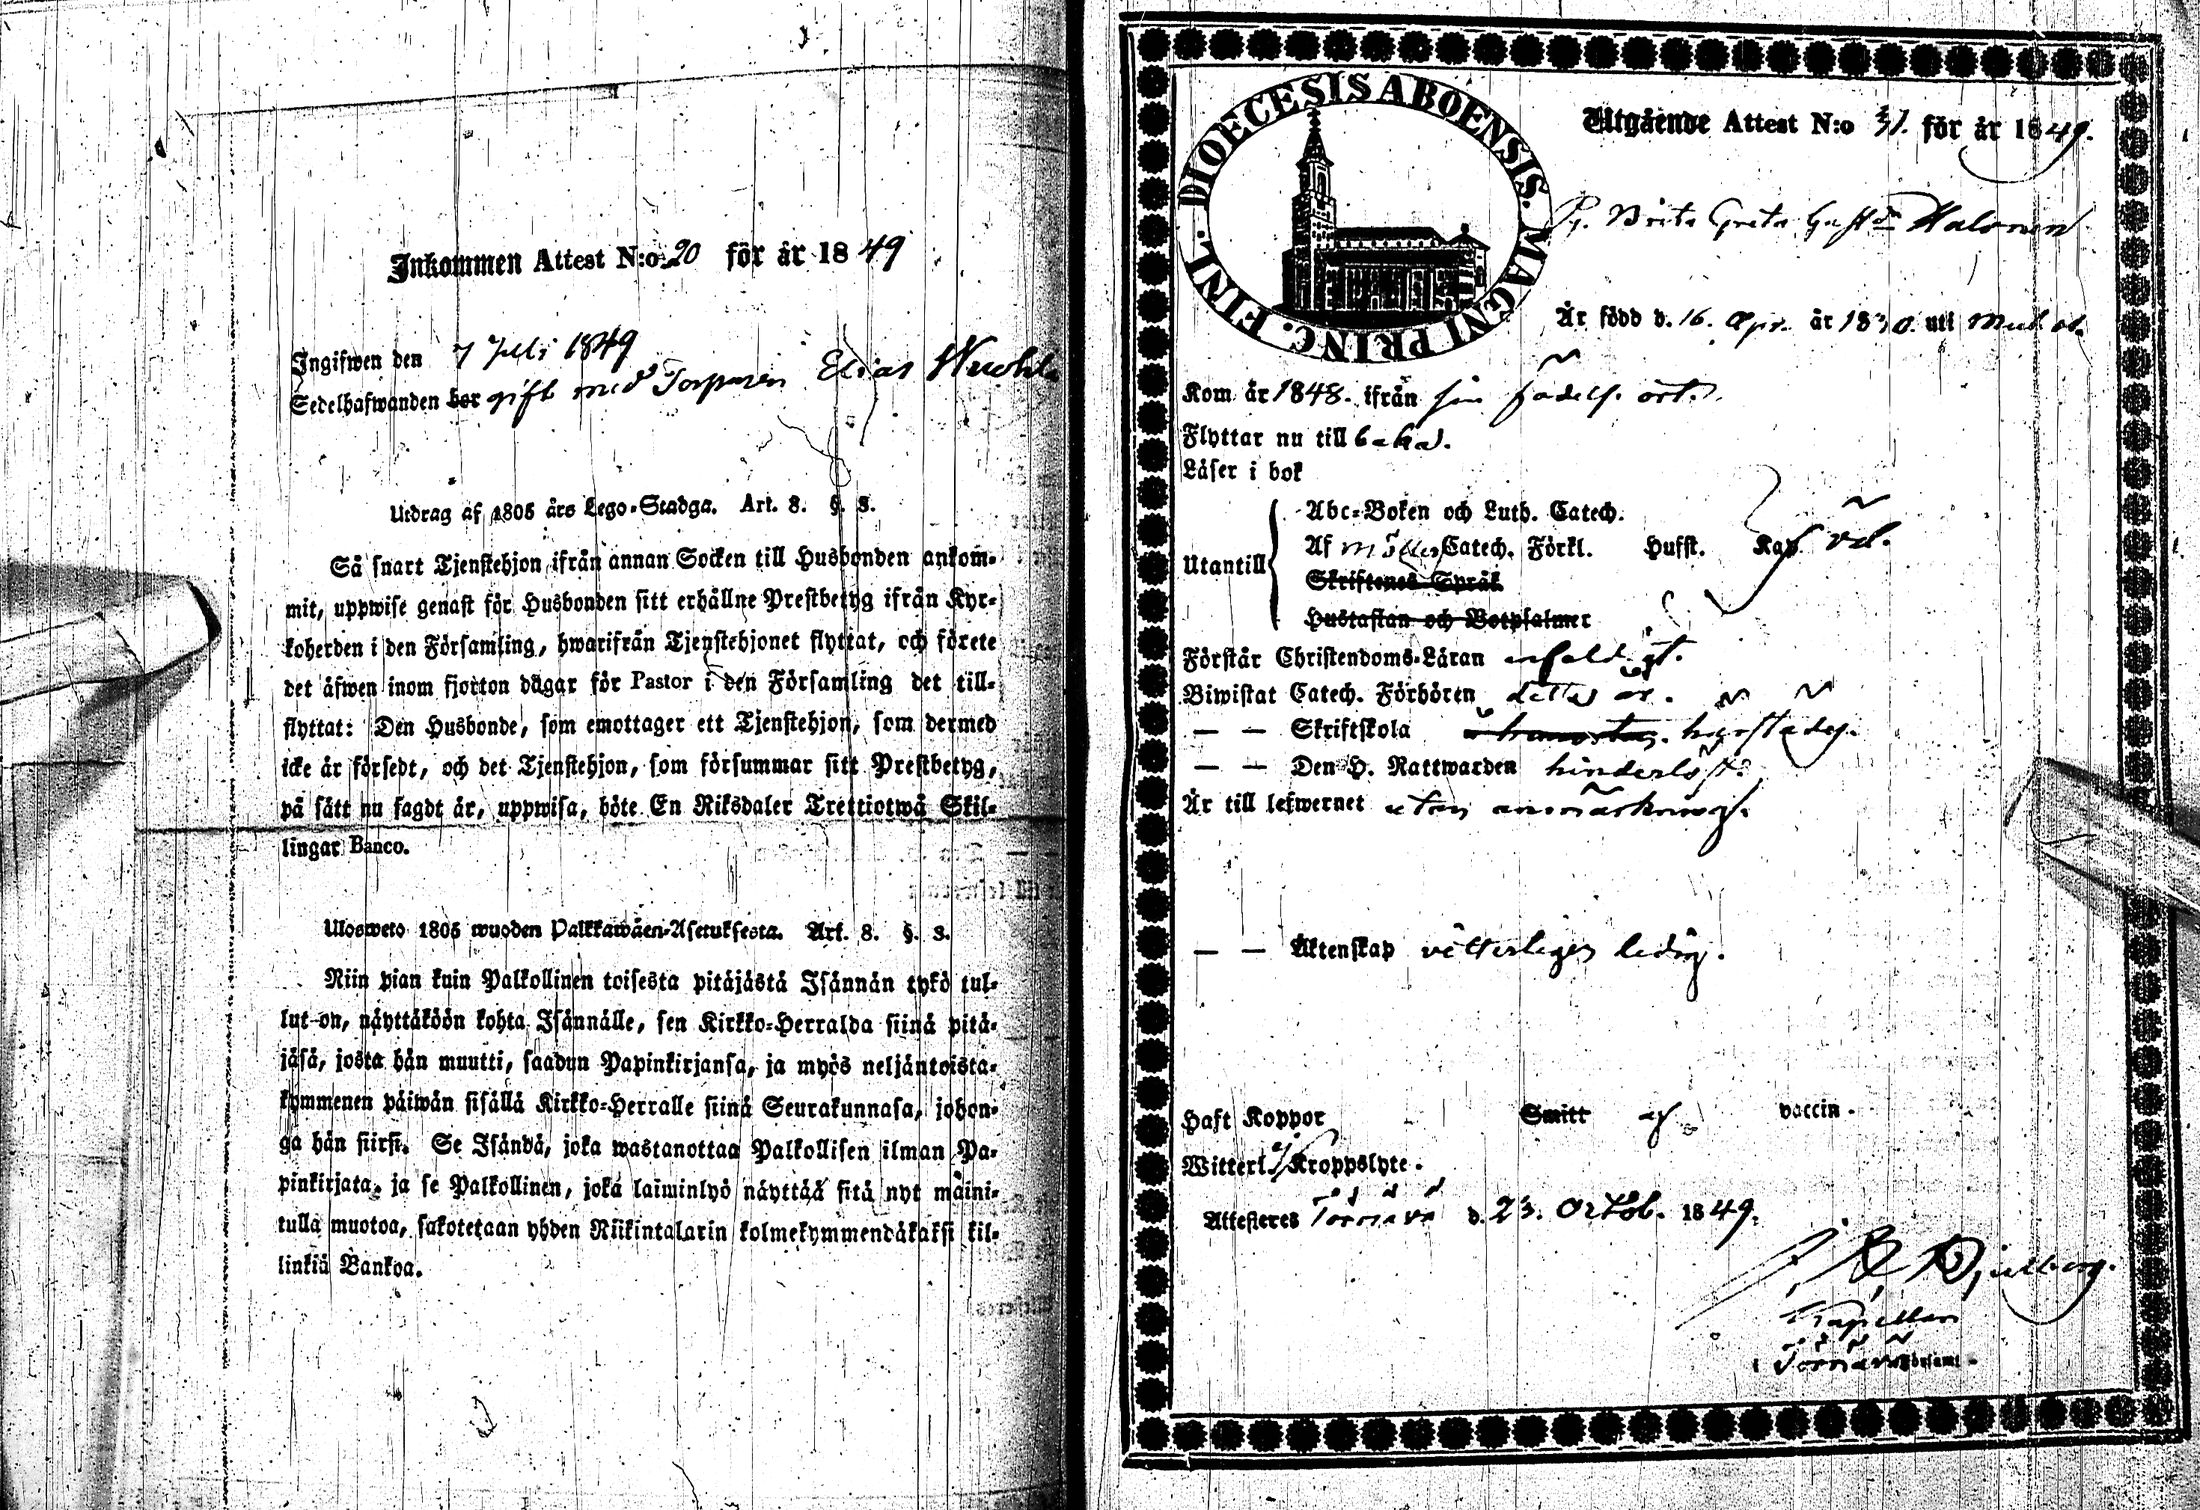 Inkommen Attest N:o 20 för år 1849
Ingifwen den 7 Juli 1849
Sedelhafwanden bor gift med Torparen Elias
Utdrag af 1805 års Lego-Stadga. Art. 8. §. 3.
Så snart Tjenstehjon ifrån annan Socken till Husbonden ankom-
mit, uppwise genast för Husbonden sitt erhållne Prestbetyg ifrån Kyr-
koherden i den Församling, hwarifrån Tjenstehjonet flyttat, och förete
det äfwen inom fjorton dagar för Pastor i den Församling det till-
flyttat: Den Husbonde, som emottager ett Tjenstehjon, som dermed
icke är försedt, och det Tjenstehjon, som försummar sitt Prestbetyg,
på sätt nu sagdt är, uppwisa, böte En Riksdaler Trettiotwå Skil-
lingar Banco.
Ulosweto 1805 wuoden Palkkawäen-Asetuksesta. Art. 8. §. 3.
Niin pian kuin Palkollinen toisesta pitäjästä Isännän tykö tul-
lut on, näyttäköön kohta Isännälle, sen Kirkko-Herralda siinä pitä-
jäsä, josta hän muutti, saadun Papinkirjansa, ja myös neljäntoista-
kymmenen päiwän sisällä Kirkko-Herralle siinä Seurakunnasa, johon-
ga hän siirsi. Se Isändä, joka wastanottaa Palkollisen ilman Pa-
pinkirjata, ja se Palkollinen, joka laiminlyö näyttää sitä nyt maini-
tulla muotoa, sakotetaan yhden Riikintalarin kolmekymmendäkaksi kil-
linkiä Bankoa.
DIOECESIS ABOENSIS. MAGNI PRINC. FINL.
Utgående Attest N:o 31. för år 1849.
Pig. Brita Greta Halonen
Är född d. 16. Apr. år 1830. uti
Kom år 1848. ifrån sin födelse ort.
Flyttar nu till
Läser i bok
Utantill
Abc-Boken och Luth. Catech.
Af Möllers Catech. Förkl. Husst. Kap.
Skriftenes Språk
Hustaflan och Botpsalmer
Förstår Christendoms-Läran enfaldigt.
Biwistat Catech. Förhören detta år.
— — Skriftskola
— — Den H. Nattwarden hinderlöst.
Är till lefwernet utan anmärkning.
— — Äktenskap vitterligen ledig.
Haft Koppor Smitt af vaccin.
Witterl. Kroppslyte.
Attesteras Törnävä d. 23. Octob. 1849.
Kapellan
i Törnävä Församl.